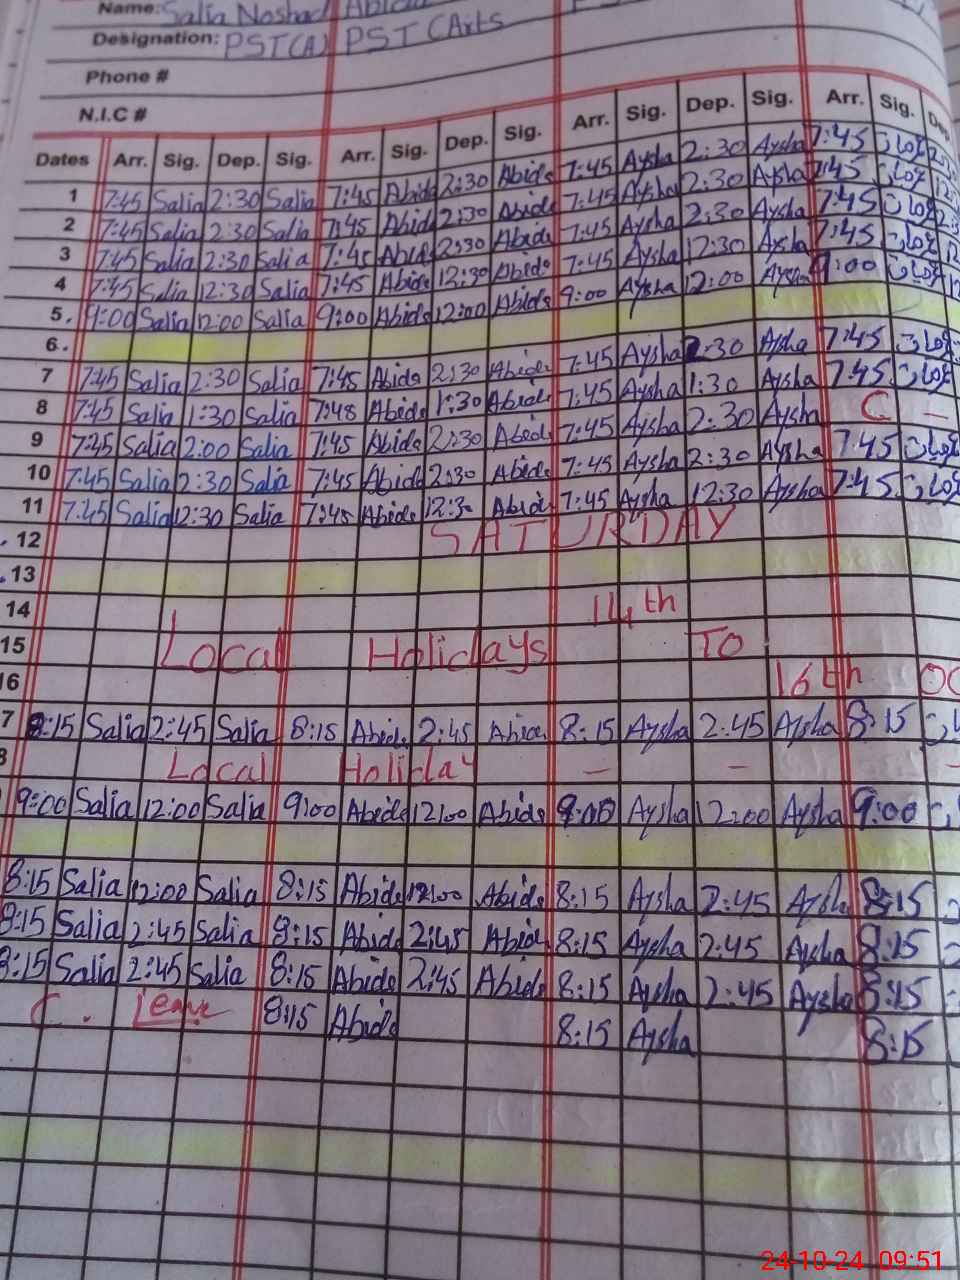 Name: Salia Noshad Abida
Designation: PST(A) PST (Arts
Phone #
N.I.C #
Dates Arr. Sig. Dep. Sig. Arr. Sig. Dep. Sig. Arr. Sig. Dep. Sig. Arr. Sig. Dep.
1 7:45 Salia 2:30 Salia 7:45 Abida 2:30 Abida 7:45 Aysha 2:30 Aysha 7:45
2 7:45 Salia 2:30 Salia 7:45 Abida 2:30 Abida 7:45 Aysha 2:30 Aysha 7:45
3 7:45 Salia 2:30 Salia 7:45 Abida 2:30 Abida 7:45 Aysha 2:30 Aysha 7:45
4 7:45 Salia 12:30 Salia 7:45 Abida 12:30 Abida 7:45 Aysha 12:30 Aysha 7:45
5. 9:00 Salia 12:00 Salia 9:00 Abida 12:00 Abida 9:00 Aysha 12:00 Aysha 9:00
6.
7 7:45 Salia 2:30 Salia 7:45 Abida 2:30 Abida 7:45 Aysha 2:30 Aysha 7:45
8 7:45 Salia 1:30 Salia 7:45 Abida 1:30 Abida 7:45 Aysha 1:30 Aysha 7:45
9 7:45 Salia 2:00 Salia 7:45 Abida 2:30 Abida 7:45 Aysha 2:30 Aysha C –
10 7:45 Salia 2:30 Salia 7:45 Abida 2:30 Abida 7:45 Aysha 2:30 Aysha 7:45
11 7:45 Salia 12:30 Salia 7:45 Abida 12:30 Abida 7:45 Aysha 12:30 Aysha 7:45
12 SATURDAY
13
14 14th
15 Local Holidays TO
16 16th OC
7 8:15 Salia 2:45 Salia 8:15 Abida 2:45 Abida 8:15 Aysha 2:45 Aysha 8:15
8 Local Holiday – – –
9:00 Salia 12:00 Salia 9:00 Abida 12:00 Abida 9:00 Aysha 12:00 Aysha 9:00
8:15 Salia 12:00 Salia 8:15 Abida 12:00 Abida 8:15 Aysha 2:45 Aysha 8:15
8:15 Salia 2:45 Salia 8:15 Abida 2:45 Abida 8:15 Aysha 2:45 Aysha 8:15
8:15 Salia 2:45 Salia 8:15 Abida 2:45 Abida 8:15 Aysha 2:45 Aysha 8:15
C. Leave 8:15 Abida 8:15 Aysha 8:15
24-10-24 09:51